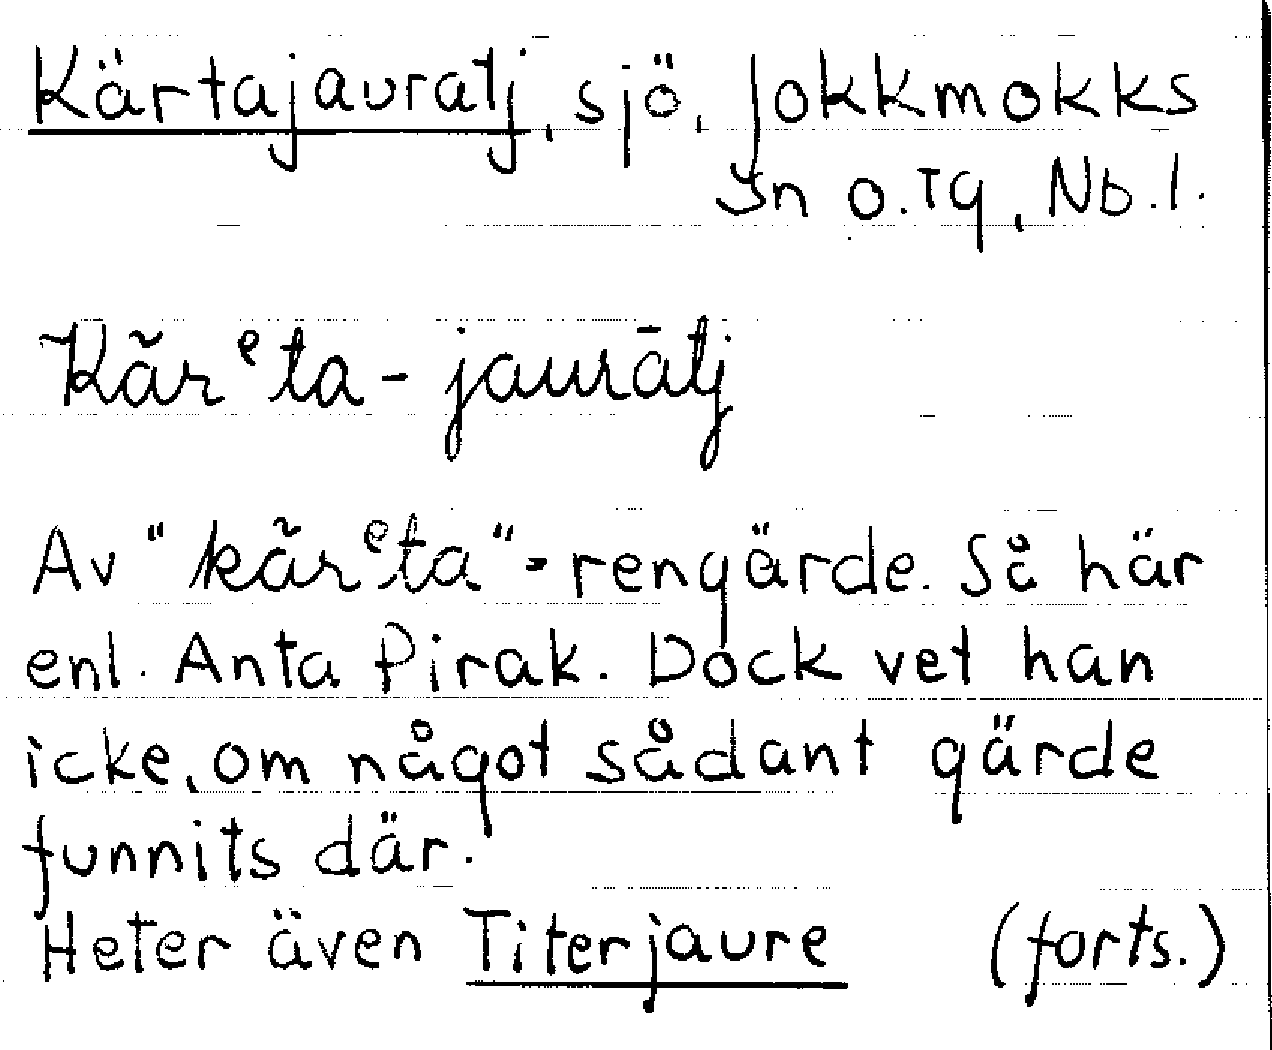 Kärtajauratj, sjö, Jokkmokks
sn o. tg, Nb. l.
Kăr ͤta-jaurātj
Av "kăr ͤta" = rengärde. Så här
enl. Anta Pirak. Dock vet han
icke, om något sådant gärde
funnits där.
Heter även Titerjaure (forts.)